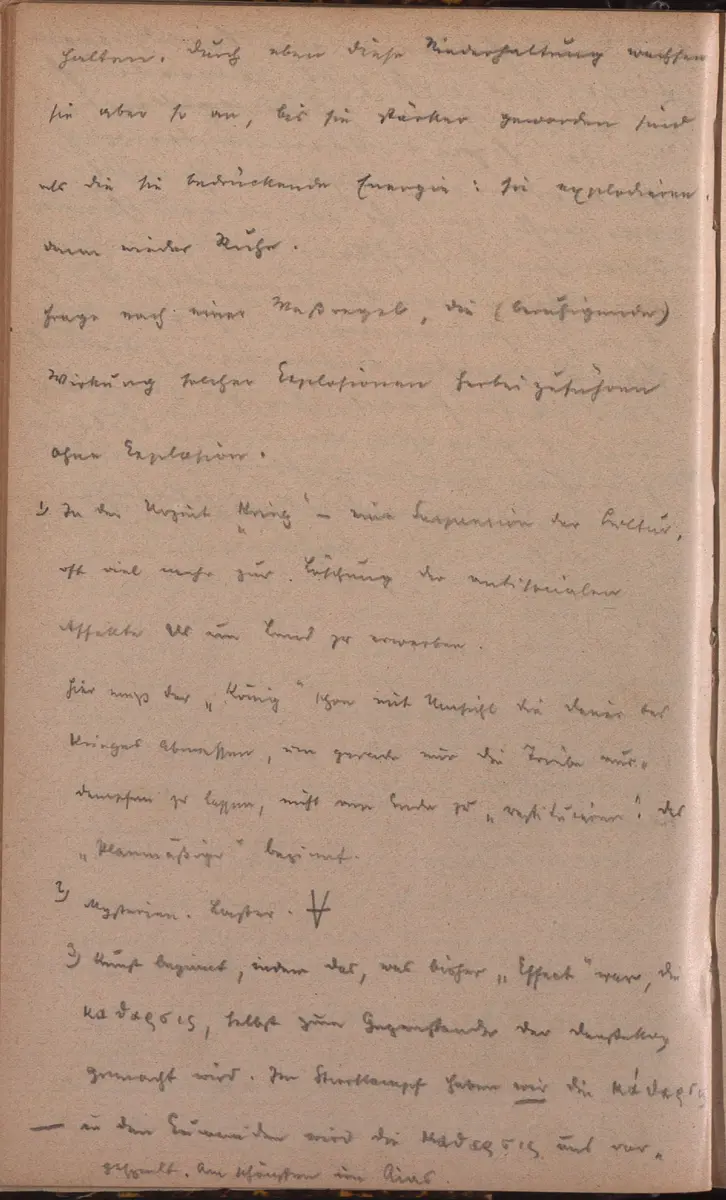 halten. Durch eben diese Niederhaltung wachsen
sie aber so an, bis sie stärker geworden sind
als die sie bedrückende Energie: sie explodieren.
dann wieder Ruhe.
Frage nach einer Maßregel, die (beruhigende)
Wirkung solcher Explosionen herbeizuführen
ohne Explosion.
1) In der Urzeit „Krieg“ – eine Suspension der Cultur,
oft viel mehr zur Löschung der antisocialen
Affekte als um Land zu erwerben.
Hier muß der „König“ schon mit Umsicht die Dauer des
Krieges abmessen, um gerade nur die Triebe aus-
dampfen zu lassen, nicht um Land zu „restituieren“: das
„Planmäßige“ beginnt.
2) Mysterien. Laster.
3) Kunst beginnt, indem das, was bisher „Effect“ war, die
κάθαρσις, selbst zum Gegenstande der Darstellung
gemacht wird. Im Stierkampf haben wir die κάθαρσις
— in den Eumeniden wird die κάθαρσις uns vor-
gespielt. Am schönsten im Aias.